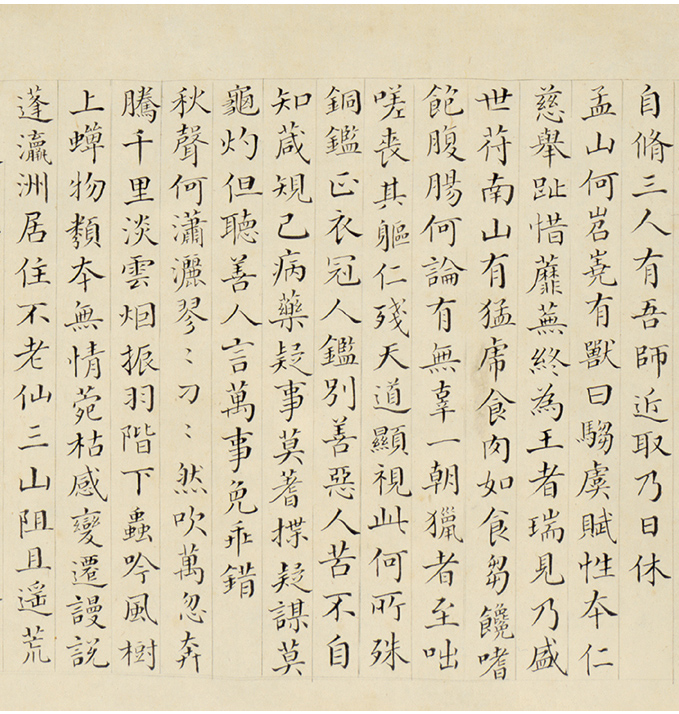 自脩三人有吾師近取乃日休
孟山何岧嶤有獸曰騶虞賦性夲仁
慈舉趾惜蘼蕪終為王者瑞見乃盛
世苻南山有猛虎食肉如食芻饞嗜
飽腹腸何論有無辜一朝獵者至咄
嗟喪其軀仁殘天道顯視此何所殊
銅鑑正衣冠人鑑別善惡人苦不自
知葴規己病藥疑事莫蓍揲疑謀莫
龜灼但聽善人言萬事免乖錯
秋聲何瀟灑翏〻刁〻然吹萬忽奔
騰千里淡雲烟振羽階下蟲吟風樹
上蟬物類夲無情菀枯感變遷謾説
蓬瀛洲居住不老仙三山阻且遥荒